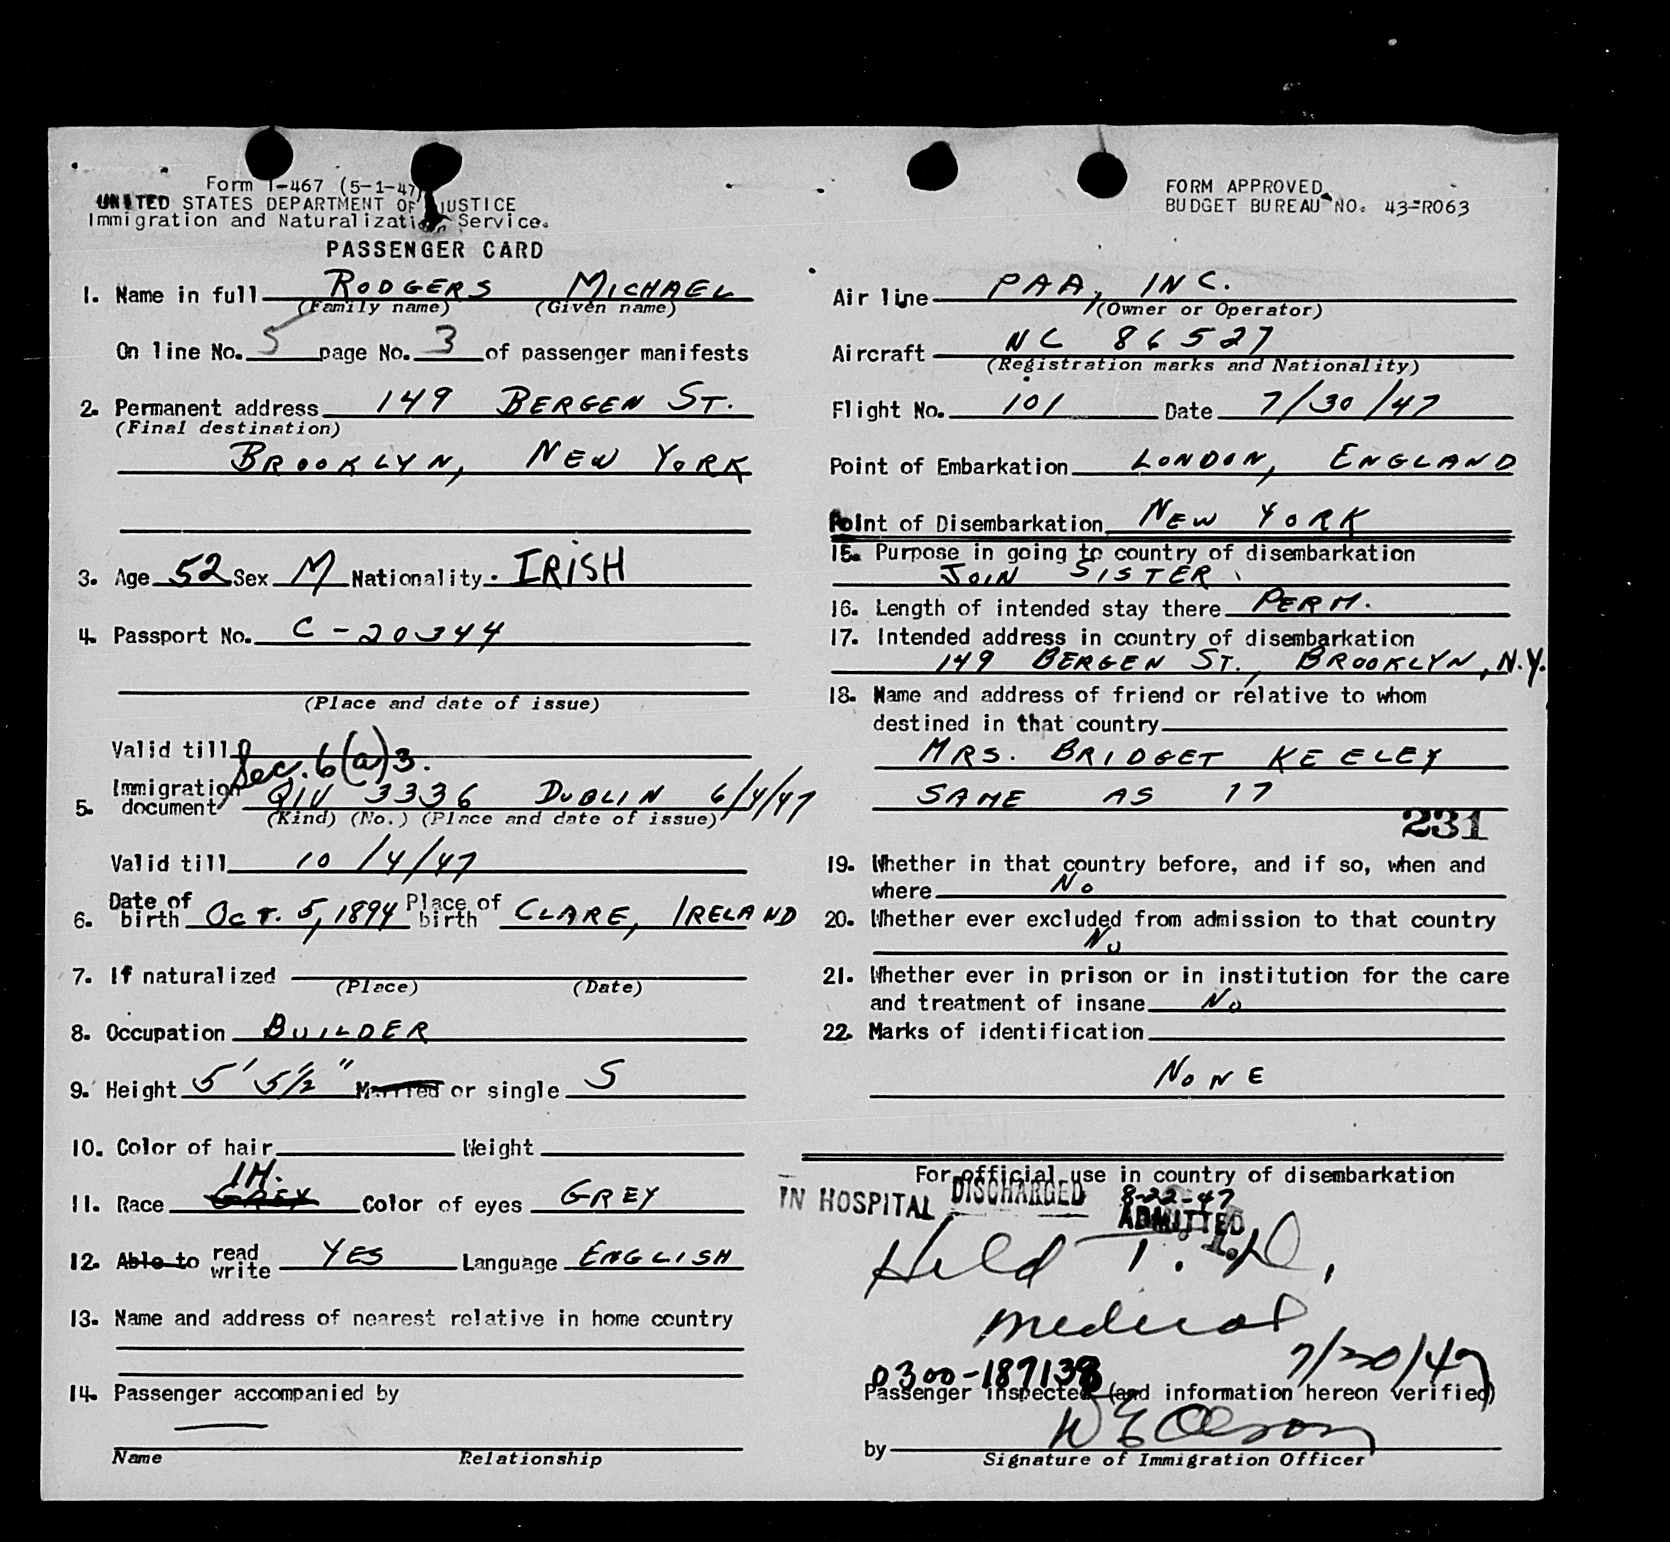 Form I-467 (5-1-47)
UNITED STATES DEPARTMENT OF JUSTICE
Immigration and Naturalization Service.
PASSENGER CARD
1. Name in full RODGERS MICHAEL
(Family name) (Given name)
On line No. 5 page No. 3 of passenger manifests
2. Permanent address 149 BERGEN ST.
(Final destination)
BROOKLYN, NEW YORK
3. Age 52 Sex M Nationality. IRISH
4. Passport No. C-20344
(Place and date of issue)
Valid till
Sec. 6(a)3.
5. Immigration document QIV 3336 DUBLIN 6/4/47
(Kind) (No.) (Place and date of issue)
Valid till 10/4/47
6. Date of birth OCT. 5, 1894 Place of birth CLARE, IRELAND
7. If naturalized
(Place) (Date)
8. Occupation BUILDER
9. Height 5' 5½" Married or single S
10. Color of hair Weight
IH.
11. Race GREY Color of eyes GREY
12. Able to read write YES Language ENGLISH
13. Name and address of nearest relative in home country
14. Passenger accompanied by
—
Name Relationship
FORM APPROVED
BUDGET BUREAU NO. 43-R063
Air line PAA, INC.
(Owner or Operator)
Aircraft NC 86527
(Registration marks and Nationality)
Flight No. 101 Date 7/30/47
Point of Embarkation LONDON, ENGLAND
Point of Disembarkation NEW YORK
15. Purpose in going to country of disembarkation
JOIN SISTER
16. Length of intended stay there PERM.
17. Intended address in country of disembarkation
149 BERGEN ST., BROOKLYN, N.Y.
18. Name and address of friend or relative to whom
destined in that country
MRS. BRIDGET KEELEY
SAME AS 17
231
19. Whether in that country before, and if so, when and
where NO
20. Whether ever excluded from admission to that country
NO
21. Whether ever in prison or in institution for the care
and treatment of insane NO
22. Marks of identification
NONE
For official use in country of disembarkation
IN HOSPITAL DISCHARGED 8-22-47
ADMITTED
Held T.D.
medical
7/30/47
0300-187138
Passenger inspected (and information hereon verified)
by W E Olson
Signature of Immigration Officer